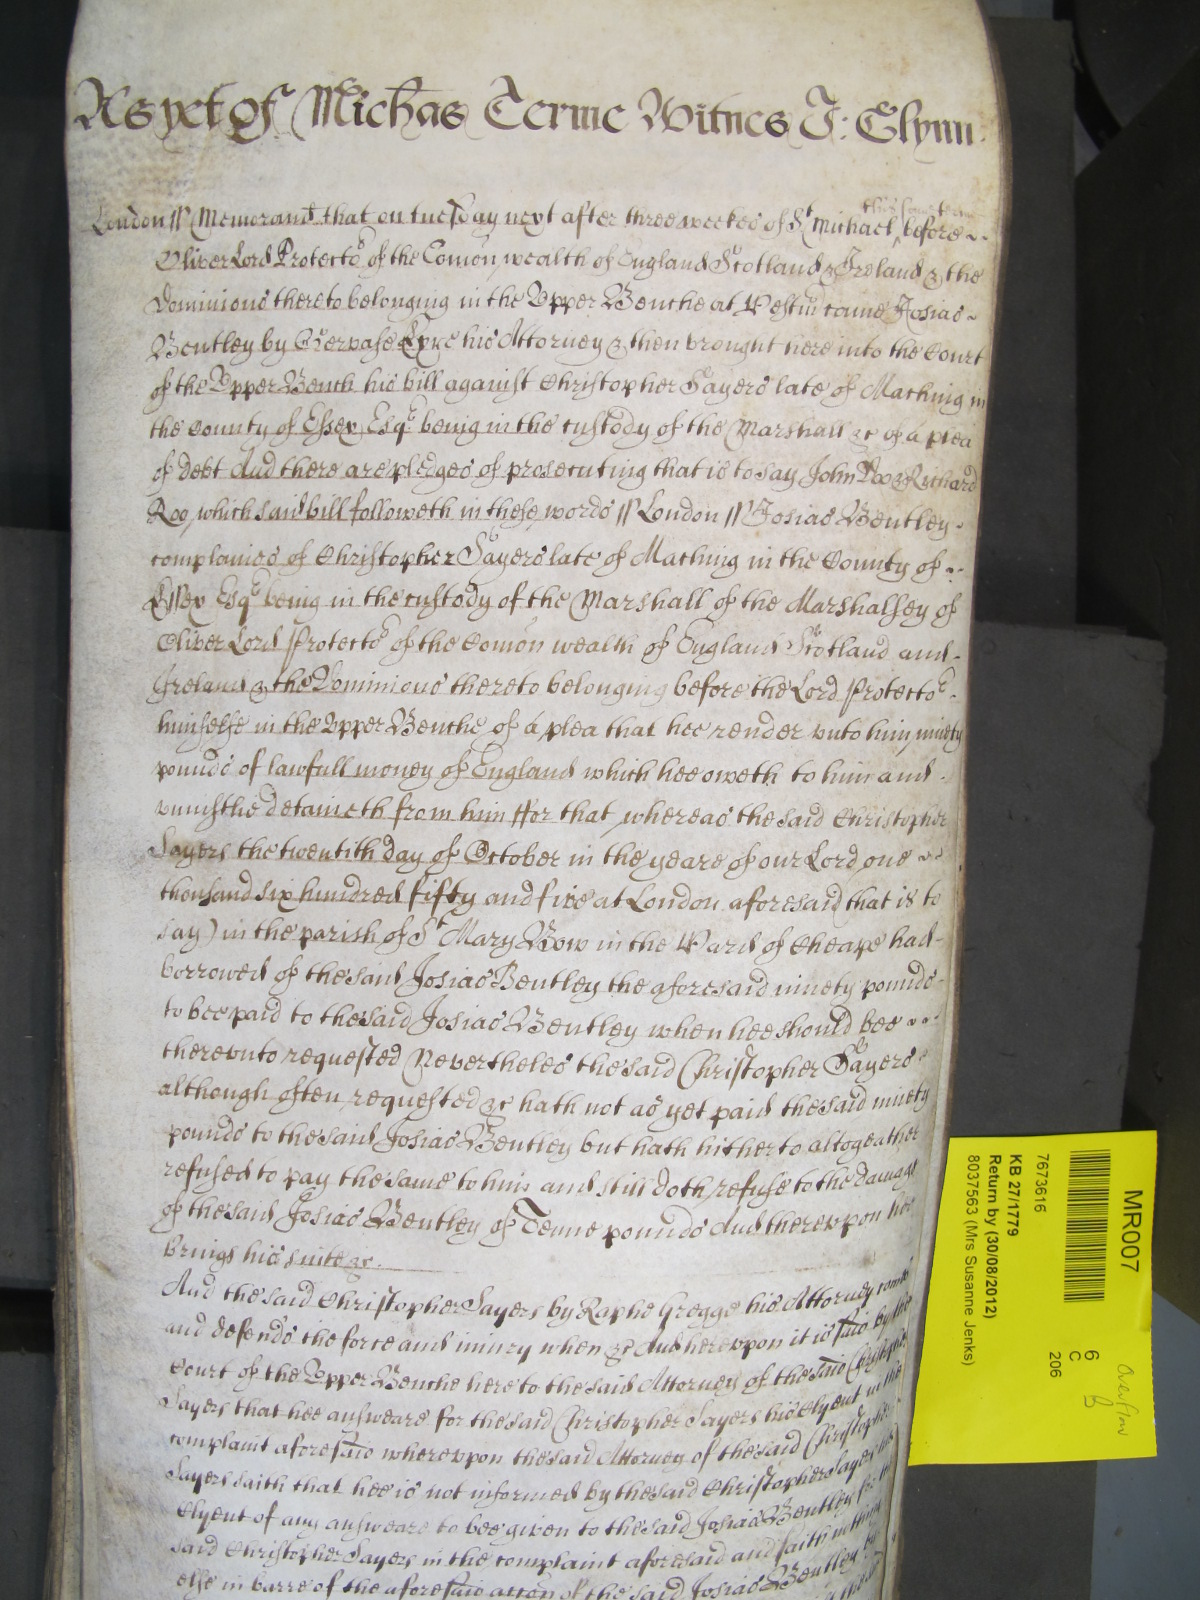 As yet of Michas Terme Witnes J: Glynn
London ss Memorand that on tuesday next after three weekes of St Michael this same terme before
Oliver Lord Protector of the Comon wealth of England Scotland & Ireland & the
Dominions thereto belonging in the Upper Benche at Westm came Josias
Bentley by Gervase his Attorney & then brought here into the Court
of the Upper Bench his bill against Christopher Sayers late of Matching in
the County of Essex Esqr being in the custody of the Marshall &c of a plea
of debt And there are pledges of prosecuting that is to say John Doo & Richard
Roo, which said bill followeth in these words ss London ss Josias Bentley
complaines of Christopher Sayers late of Matching in the County of
Essex Esqr being in the custody of the Marshall of the Marshalsey of
Oliver Lord Protector of the Comon wealth of England Scotland and
Ireland & the Dominions thereto belonging before the Lord Protector
himselfe in the Upper Benche of a plea that hee render unto him ninety
pounds of lawfull money of England which hee oweth to him and
uniustlie detaineth from him ffor that whereas the said Christopher
Sayers the twentith day of October in the yeare of our Lord one
thousand six hundred fifty and five at London aforesaid that is to
say) in the parish of St Mary Bow in the Ward of Cheape had
borrowed of the said Josias Bentley the aforesaid ninety pounds
to bee paid to the said Josias Bentley when hee should bee
thereunto requested Neverthelesse the said Christopher Sayers
although often requested &c hath not as yet paid the said ninety
pounds to the said Josias Bentley but hath hitherto altogeather
refused to pay the same to him and still doth refuse to the damage
of the said Josias Bentley of Tenne pounds And thereupon hee
brings his suite &c.
And the said Christopher Sayers by Raphe Gregge his Attorney comes
and defends the force and iniury when &c And hereupon it is said by the
Court of the Upper Benche here to the said Attorney of the said Christopher
Sayers that hee answeare for the said Christopher Sayers his Clyent in the
complaint aforesaid whereupon the said Attorney of the said Christopher
Sayers saith that hee is not informed by the said Christopher Sayers his
Clyent of any answeare to bee given to the said Josias Bentley for the
said Christopher Sayers in the complaint aforesaid and saith nothing
else in barre of the aforesaid accon of the said Josias Bentley by
MR007
7673616
KB 27/1779
Return by (30/08/2012)
8037563 (Mrs Susanne Jenks)
6
C
206
Overflow
B